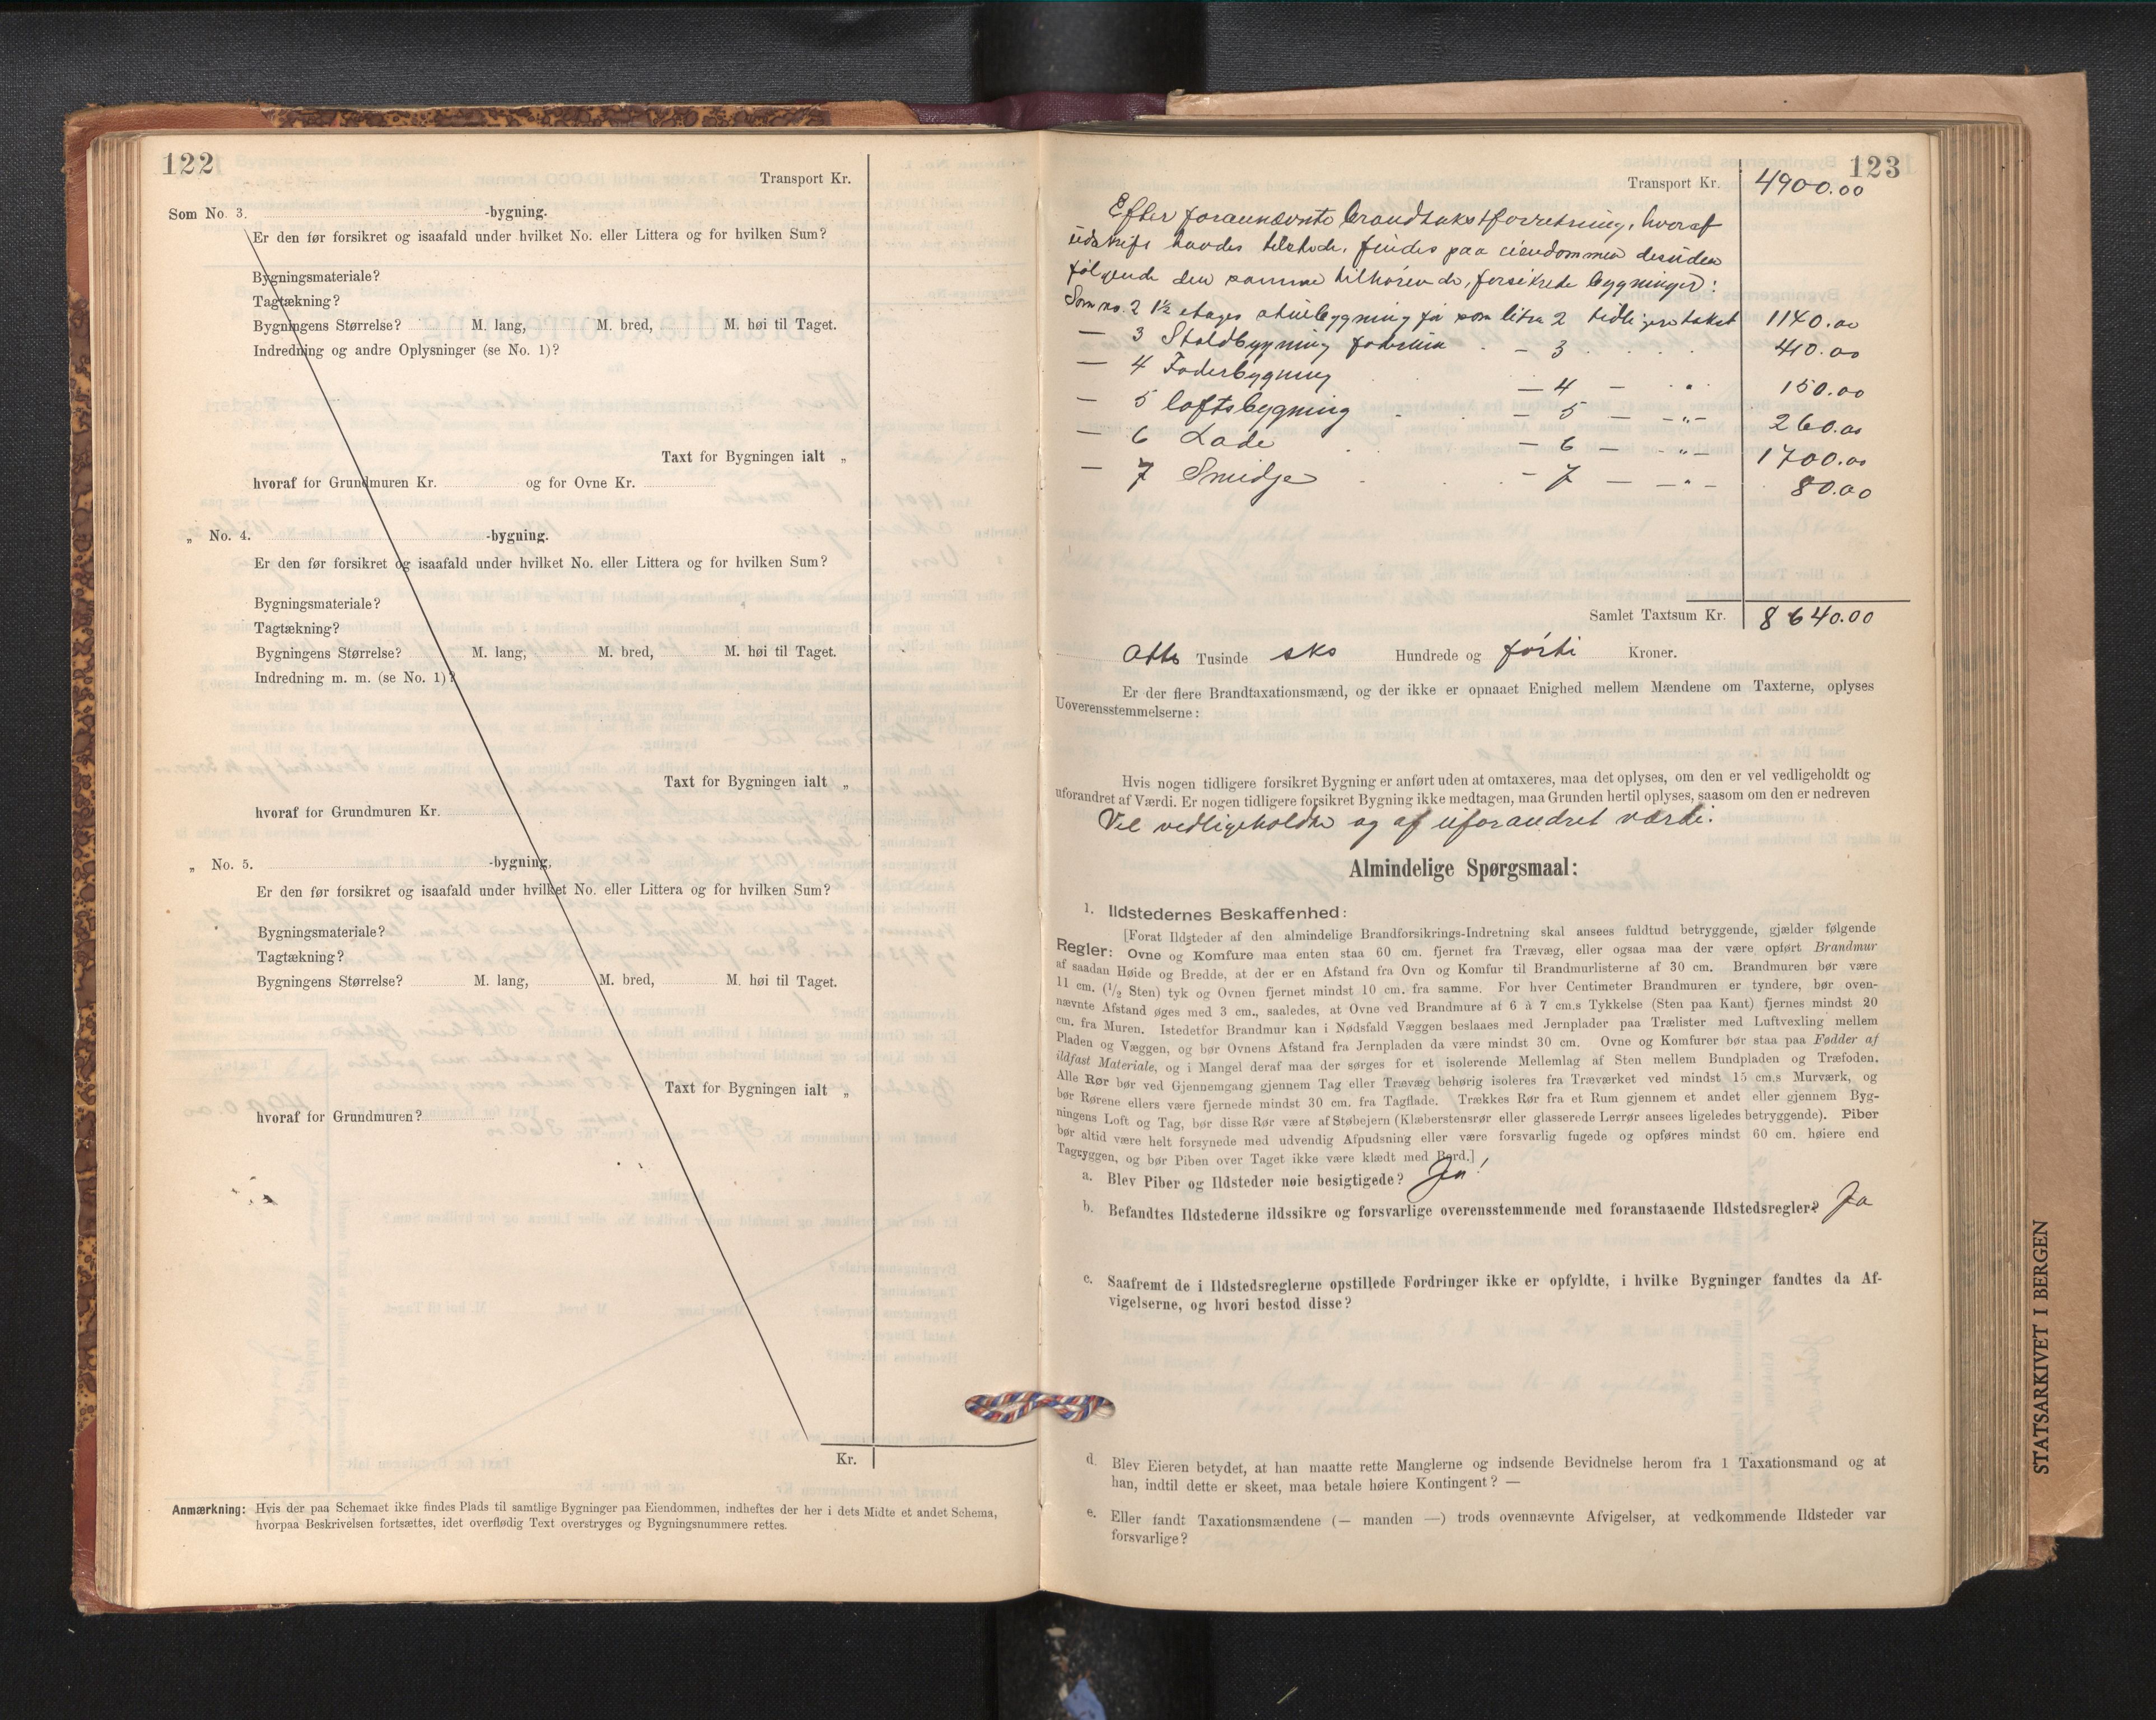 122
Transport Kr.
Som No. 3. -bygning.
Er den før forsikret og isaafald under hvilket No. eller Littera og for hvilken Sum?
Bygningsmateriale?
Tagtækning?
Bygningens Størrelse? M. lang, M. bred, M. høi til Taget.
Indredning og andre Oplysninger (se No. 1)?
Taxt for Bygningen ialt „
hvoraf for Grundmuren Kr. og for Ovne Kr.
„ No. 4. -bygning.
Er den før forsikret og isaafald under hvilket No. eller Littera og for hvilken Sum?
Bygningsmateriale?
Tagtækning?
Bygningens Størrelse? M. lang, M. bred, M. høi til Taget.
Indredning m. m. (se No. 1)?
Taxt for Bygningen ialt „
hvoraf for Grundmuren Kr.
„ No. 5. -bygning,
Er den før forsikret og isaafald under hvilket No. eller Littera og for hvilken Sum?
Bygningsmateriale?
Tagtækning?
Bygningens Størrelse? M. lang, M. bred, M. høi til Taget.
Taxt for Bygningen ialt „
hvoraf for Grundmuren?
Kr.
Anmærkning: Hvis der paa Schemaet ikke findes Plads til samtlige Bygninger paa Eiendommen, indheftes der her i dets Midte et andet Schema,
hvorpaa Beskrivelsen fortsættes, idet overflødig Text overstryges og Bygningsnummere rettes.
123
Transport Kr. 4900.00
Efter forannævnte brandtakstforretning, hvoraf
udskrift havdes tilstede, findes paa eiendommen desuden
følgende den samme tilhørende, forsikrede bygninger:
Som no. 2 1½ etages stuebygning før som litra 2 tidligere takst 1140.00
— 3 Staldbygning - 3 410.00
— 4 Foderbygning — 4 — " 150.00
— 5 loftsbygning — 5 — -"- 260.00
— 6 Lade — 6 — -"- 1700.00
— 7 Smidje - 7 — -"- 80.00
Samlet Taxtsum Kr. 8640.00
Otte Tusinde sks Hundrede og førti Kroner.
Er der flere Brandtaxationsmænd, og der ikke er opnaaet Enighed mellem Mændene om Taxterne, oplyses
Uoverensstemmelserne:
Hvis nogen tidligere forsikret Bygning er anført uden at omtaxeres, maa det oplyses, om den er vel vedligeholdt og
uforandret af Værdi. Er nogen tidligere forsikret Bygning ikke medtagen, maa Grunden hertil oplyses, saasom om den er nedreven
Vel vedligeholdte og af uforandret værdi.
Almindelige Spørgsmaal:
1. Ildstedernes Beskaffenhed:
[Forat Ildsteder af den almindelige Brandforsikrings-Indretning skal ansees fuldtud betryggende, gjælder følgende
Regler: Ovne og Komfure maa enten staa 60 cm. fjernet fra Trævæg, eller ogsaa maa der være opført Brandmur
af saadan Høide og Bredde, at der er en Afstand fra Ovn og Komfur til Brandmurlisterne af 30 cm. Brandmuren bør være
11 cm. (1/2 Sten) tyk og Ovnen fjernet mindst 10 cm. fra samme. For hver Centimeter Brandmuren er tyndere, bør oven-
nævnte Afstand øges med 3 cm., saaledes, at Ovne ved Brandmure af 6 à 7 cm.s Tykkelse (Sten paa Kant) fjernes mindst 20
cm. fra Muren. Istedetfor Brandmur kan i Nødsfald Væggen beslaaes med Jernplader paa Trælister med Luftvexling mellem
Pladen og Væggen, og bør Ovnens Afstand fra Jernpladen da være mindst 30 cm. Ovne og Komfurer bør staa paa Fødder af
ildfast Materiale, og i Mangel deraf maa der sørges for et isolerende Mellemlag af Sten mellem Bundpladen og Træfoden.
Alle Rør bør ved Gjennemgang gjennem Tag eller Trævæg behørig isoleres fra Træværket ved mindst 15 cm.s Murværk, og
bør Rørene ellers være fjernede mindst 30 cm. fra Tagflade. Trækkes Rør fra et Rum gjennem et andet eller gjennem Byg-
ningens Loft og Tag, bør disse Rør være af Støbejern (Klæberstensrør eller glasserede Lerrør ansees ligeledes betryggende). Piber
bør altid være helt forsynede med udvendig Afpudsning eller være forsvarlig fugede og opføres mindst 60 cm. høiere end
Tagryggen, og bør Piben over Taget ikke være klædt med Bord.]
a. Blev Piber og Ildsteder nøie besigtigede? Ja!
b. Befandtes Ildstederne ildssikre og forsvarlige overensstemmende med foranstaaende Ildstedsregler? Ja
c. Saafremt de i Ildstedsreglerne opstillede Fordringer ikke er opfyldte, i hvilke Bygninger fandtes da Af-
vigelserne, og hvori bestod disse?
d. Blev Eieren betydet, at han maatte rette Manglerne og indsende Bevidnelse herom fra 1 Taxationsmand og at
han, indtil dette er skeet, maa betale høiere Kontingent? —
e. Eller fandt Taxationsmændene (— manden —) trods ovennævnte Afvigelser, at vedkommende Ildsteder var
forsvarlige?
STATSARKIVET I BERGEN